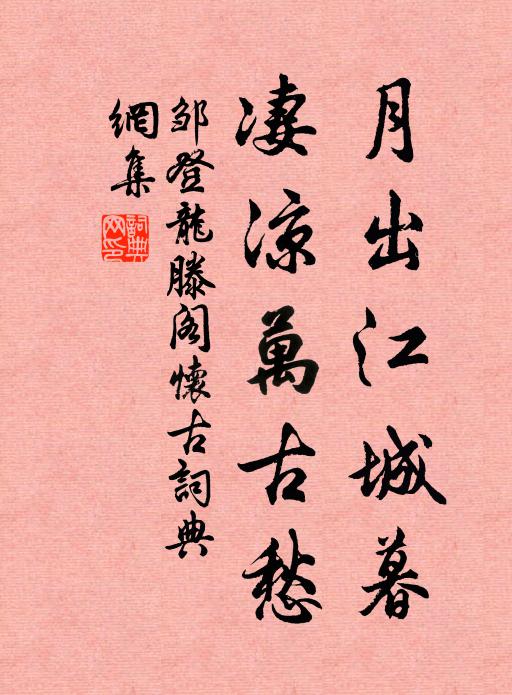 月出江城暮
凄涼萬古愁
鄒登龍滕閣懷古詞典
網集
詞典
网印